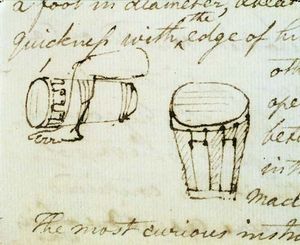 a foot in diameter,
quickness with the edge of hi
oth
ope
bea
in th
mad
The most curious instru